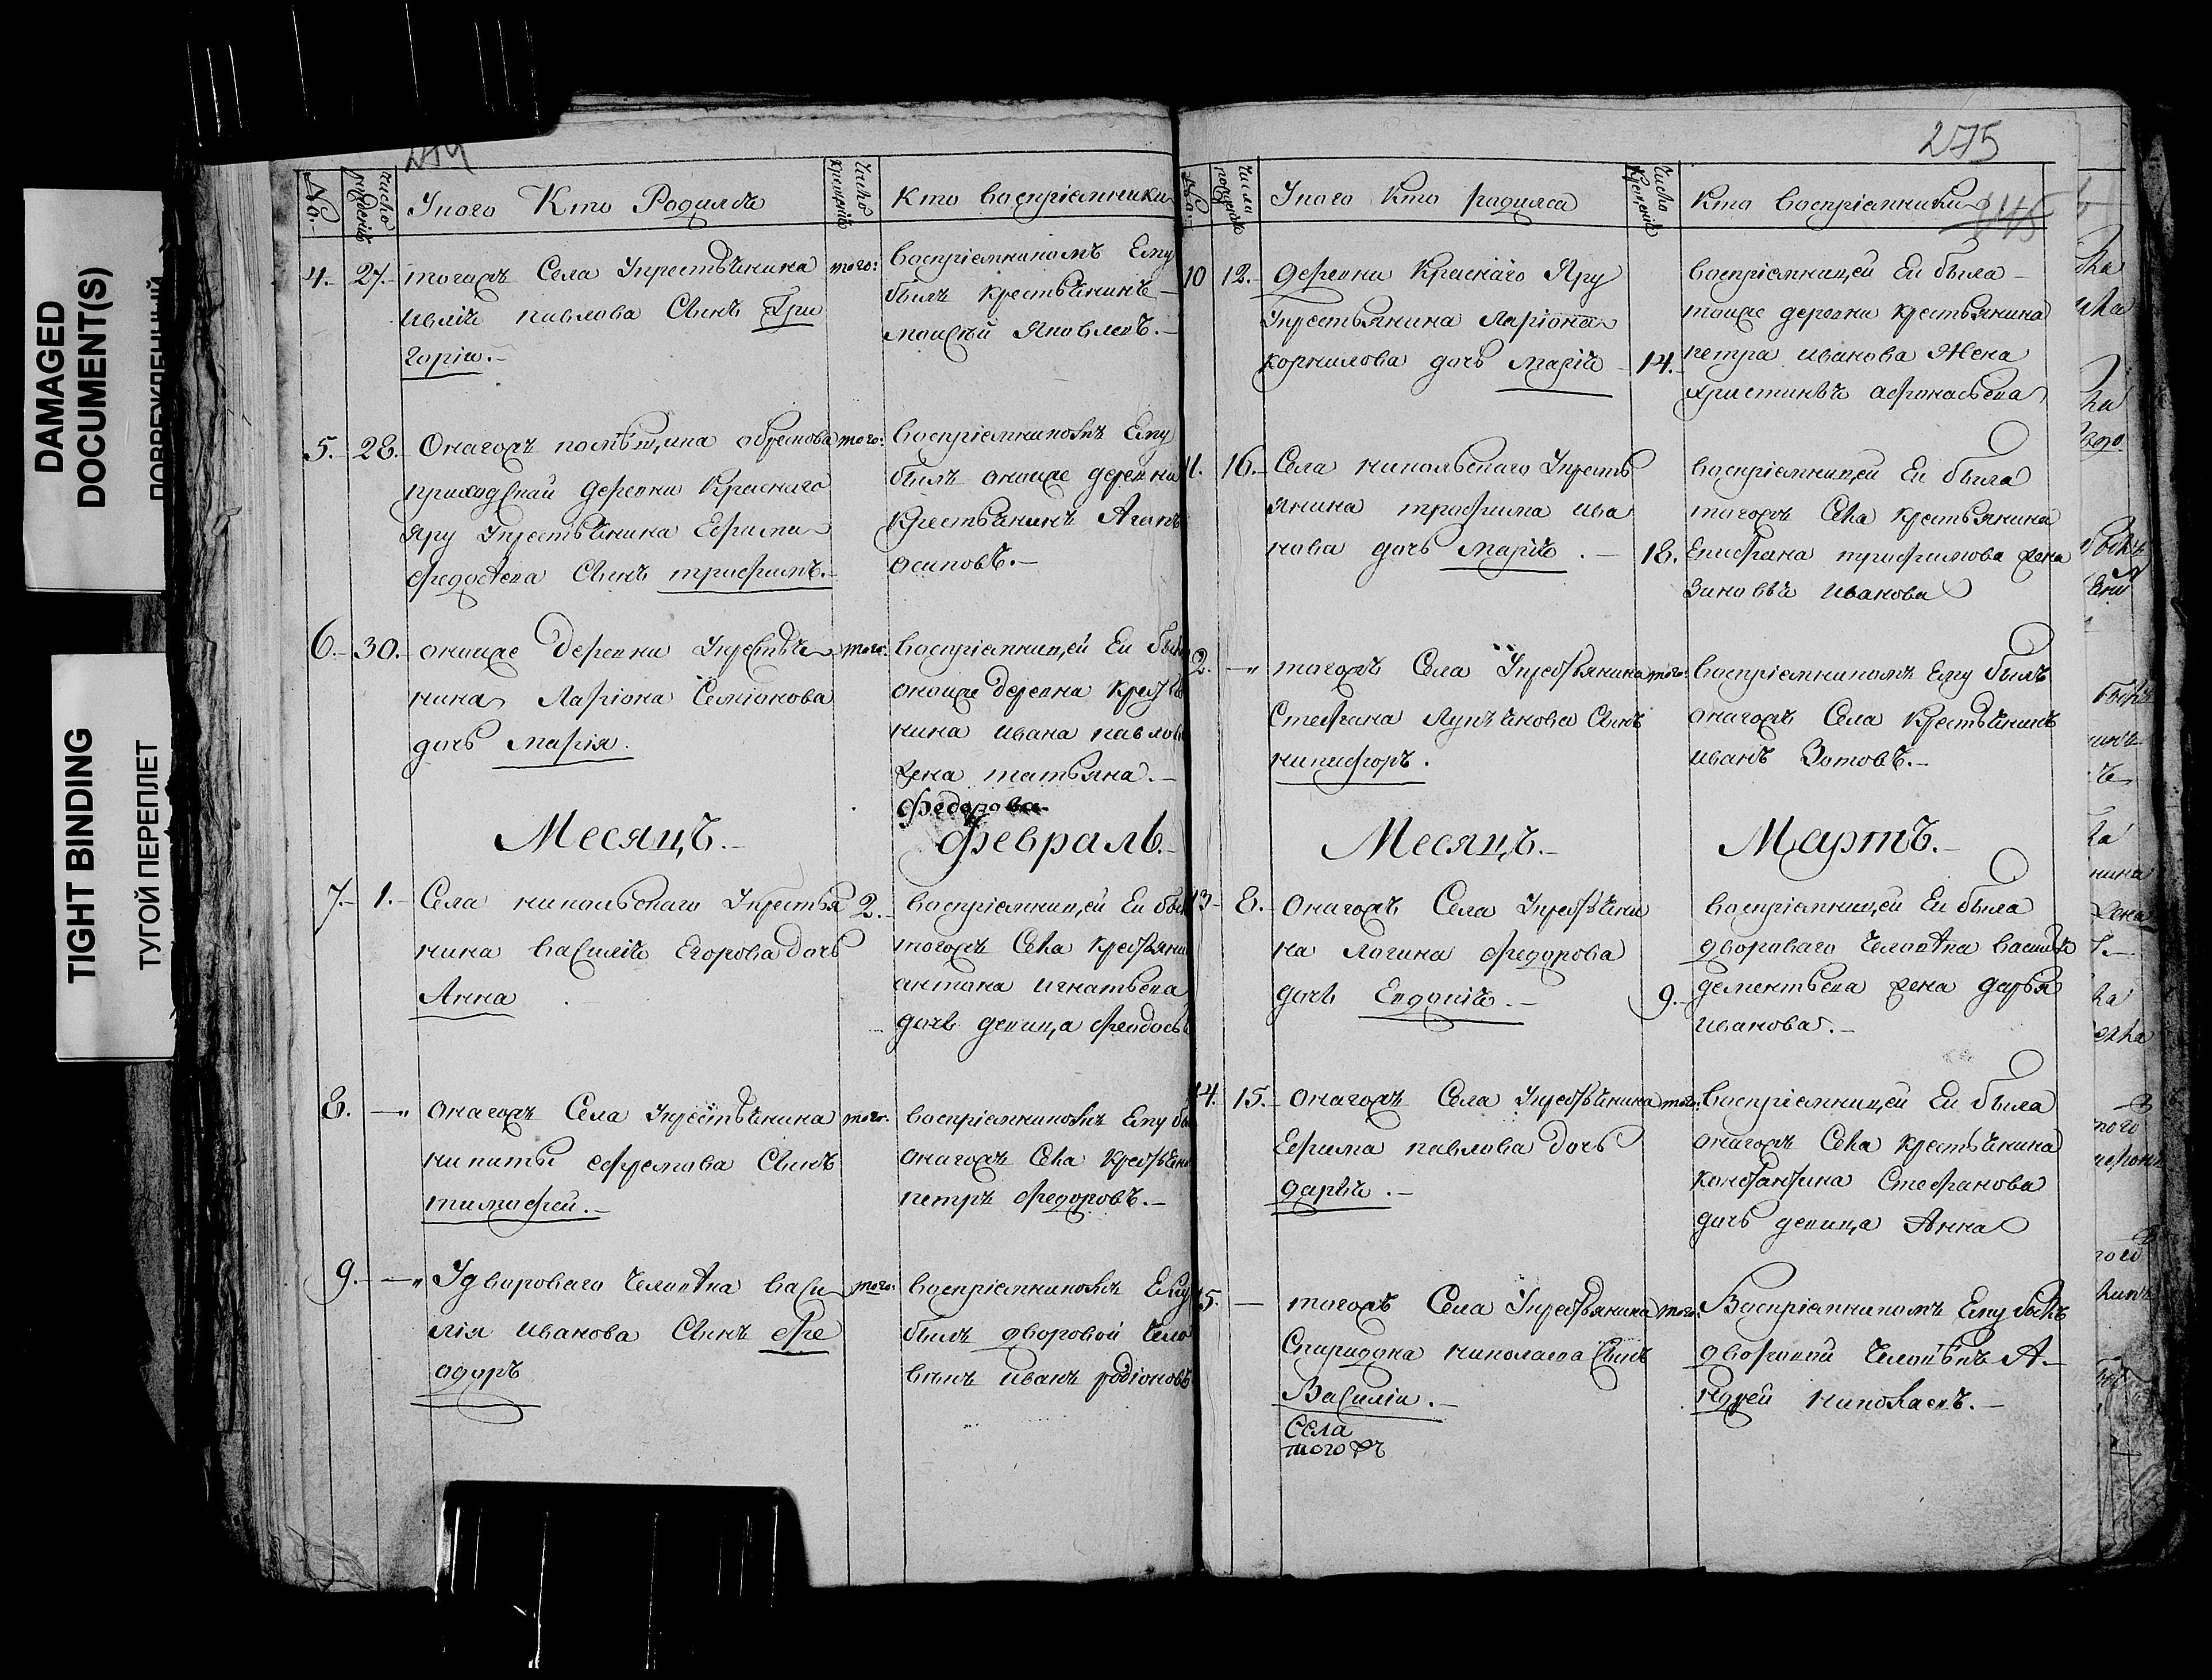 DAMAGED
DOCUMENT(S)
TIGHT BINDING
ТУГОЙ ПЕРЕПЛЕТ
No. число рождения Уного Кто Родился Число крещения Кто воспріемники
4. 27. тогожъ Села Укрестьянина того:
павлова Сынъ Гри
горіи.
воспріемникомъ Ему
былъ крестьянинъ
Яковлевъ.
5. 28. Оногожъ помѣщика того:
приходской деревни Краснаго
яру Укрестьянина Ефима
федотева Сынъ трофимъ.
воспріемникомъ Ему
былъ оноиже деревни
крестьянинъ
осиповъ.
6. 30. оноиже деревни Укрестья того:
нина Ларіона Семіонова
дочь марія.
воспріемницей Еи
оноиже деревни
нина ивана
жена татьяна.
федорова
Месяцъ. февраль.
7. 1. Села никольскаго Укрестья 2.
нина василія Егорова дочь
Анна
воспріемницей Еи
тогожъ Села
антона игнатьева
дочь девица
8. —„ оногожъ Села Укрестьянина того:
никиты ефремова Сынъ
тимофей.
воспріемникомъ Ему
оногожъ Села
петръ федоровъ.
9. —„ Удвороваго Человѣка васи того:
лія иванова Сынъ фе
одоръ
воспріемникомъ Ему
былъ дворовой чело
вѣкъ иванъ родіоновъ
275
Уного Кто родился Число крещения Кто воспріемники
10 12. деревни Краснаго Яру
Укрестьянина Ларіона
корнилова дочь марія 14.
воспріемницей Еи была
тоиже деревни крестьянина
петра иванова Жена
христинья афонасьева
11. 16. Села никольскаго Укресть
янина трофима ива
нова дочь марія. 18.
воспріемницей Еи была
тогожъ Села крестьянина
Епифана трофимова жена
Зиновья иванова
2. —„ тогожъ Села Укрестьянина того:
Стефана Лукьянова Сынъ
никифоръ.
воспріемникомъ Ему былъ
оногожъ Села крестьянинъ
иванъ Зотовъ.
Месяцъ. Мартъ.
13 8. Оногожъ Села Укрестьяни
на Логина федорова
дочь Евдокія. 9.
воспріемницей Еи была
двороваго Человѣка василья
дементьева жена дарья
иванова.
14. 15. Оногожъ Села Укрестьянина того:
Ефима павлова дочь
дарья.
воспріемницей Еи была
оногожъ Села крестьянина
константина Стефанова
дочь девица Анна
15. — тогожъ Села Укрестьянина того:
Спиридона николаева Сынъ
Василіи.
Воспріемникомъ Ему былъ
дворовой Человѣкъ А
ндрей николаевъ.
Села
тогожъ